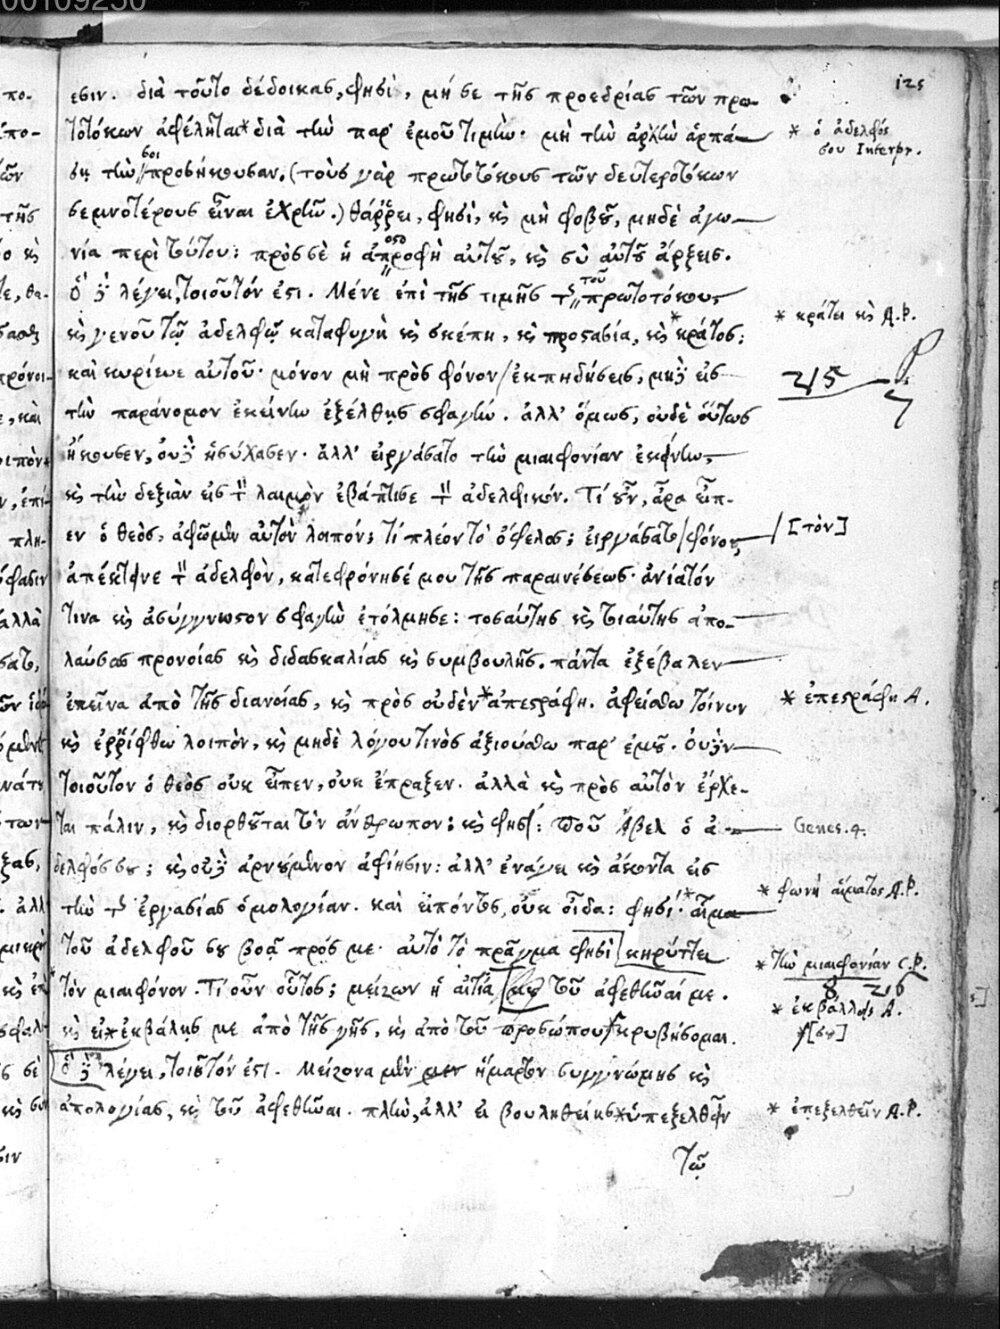 00109250
125
εσιν. διὰ τοῦτο δέδοικας, φησὶ, μή σε τῆς προεδρίας τῶν πρω-
τοτόκων ἀφέληται* διὰ τὴν παρ' ἐμοῦ τιμὴν· μὴ τὴν ἀρχὴν ἁρπά-
* ὁ ἀδελφός
σου Interpr.
σῃ τὴν σοι προσήκουσαν, (τοὺς γὰρ πρωτοτόκους τῶν δευτεροτόκων
σεμνοτέρους εἶναι ἐχρῆν.) θάῤῥει, φησὶ, κ̀ς μὴ φοβοῦ, μηδὲ ἀγω-
νία περὶ τούτου: πρὸς σὲ ἡ ἀποστροφὴ αὐτοῦ, κ̀ς σὺ αὐτοῦ ἄρξεις.
Ὃ γὰρ λέγει, τοιοῦτόν ἐστι. Μένε ἐπὶ τῆς τιμῆς τῆς τοῦ πρωτοτόκου,
κ̀ς γενοῦ τῷ ἀδελφῷ καταφυγὴ κ̀ς σκέπη, κ̀ς προστασία, κ̀ς *κράτος;
* κράτει κ̀ς A.P.
καὶ κυρίευε αὐτοῦ· μόνον μὴ πρὸς φόνον / ἐκπηδήσεις, μὴ γὰρ εἰς
215
τὴν παράνομον ἐκείνην ἐξέλθῃς σφαγὴν. ἀλλ' ὅμως, οὐδὲ οὕτως
ἤκουσεν, οὐχ ἡσύχασεν· ἀλλ' εἰργάσατο τὴν μιαιφονίαν ἐκείνην,
κ̀ς τὴν δεξιὰν εἰς τὸν λαιμὸν ἐβάπτισε τὸν ἀδελφικόν. Τί οὖν, ἆρα εἶπ-
εν ὁ θεὸς, ἀφῶμεν αὐτὸν λοιπόν; τί πλέον τὸ ὄφελος; εἰργάσατο / φόνον,
/ [τὸν]
ἀπέκτεινε τὸν ἀδελφὸν, κατεφρόνησέ μου τῆς παραινέσεως· ἀνίατόν
τινα κ̀ς ἀσύγγνωστον σφαγὴν ἐτόλμησε: τοσαύτης κ̀ς τοιαύτης ἀπο-
λαύσας προνοίας κ̀ς διδασκαλίας κ̀ς συμβουλῆς. πάντα ἐξέβαλεν
ἐκεῖνα ἀπὸ τῆς διανοίας, κ̀ς πρὸς οὐδὲν *ἀπεστράφη. ἀφείσθω τοίνυν
* ἐπεστράφη A.
κ̀ς ἐῤῥίφθω λοιπὸν, κ̀ς μηδὲ λόγου τινὸς ἀξιούσθω παρ' ἐμοῦ. Οὐδὲν
τοιοῦτον ὁ θεὸς οὐκ εἶπεν, οὐκ ἔπραξεν. ἀλλὰ κ̀ς πρὸς αὐτὸν ἔρχε-
ται πάλιν, κ̀ς διορθοῦται τὸν ἄνθρωπον: κ̀ς φησί: Ποῦ Ἄβελ ὁ ἀ-
Genes. 4.
δελφός σου; κ̀ς οὐδὲ ἀρνούμενον ἀφίησιν: ἀλλ' ἐνάγει κ̀ς ἄκοντα εἰς
τὴν τῆς ἐργασίας ὁμολογίαν. καὶ εἰπόντος, οὐκ οἶδα: φησί· *αἷμα
* φωνὴ αἵματος A.P.
τοῦ ἀδελφοῦ σου βοᾷ πρός με· αὐτὸ τὸ πρᾶγμα φησὶ κηρύττει
* τὴν μιαιφονίαν C.P.
*τὸν μιαιφόνον. Τί οὖν οὗτος; μείζων ἡ αἰτία μου τοῦ ἀφεθῆναί με.
8 216
* ἐκβάλλεις A.
κ̀ς εἰ *ἐκβάλῃς με ἀπὸ τῆς γῆς, κ̀ς ἀπὸ τοῦ προσώπου κρυβήσομαι.
[σου]
ὃ γὰρ λέγει, τοιοῦτόν ἐστι. Μείζονα μὲν ἥμαρτον συγγνώμης κ̀ς
ἀπολογίας, κ̀ς τοῦ ἀφεθῆναι. πλὴν, ἀλλ' εἰ βουληθείης *ὑπεξελθεῖν
* ἐπεξελθεῖν A.P.
τῷ